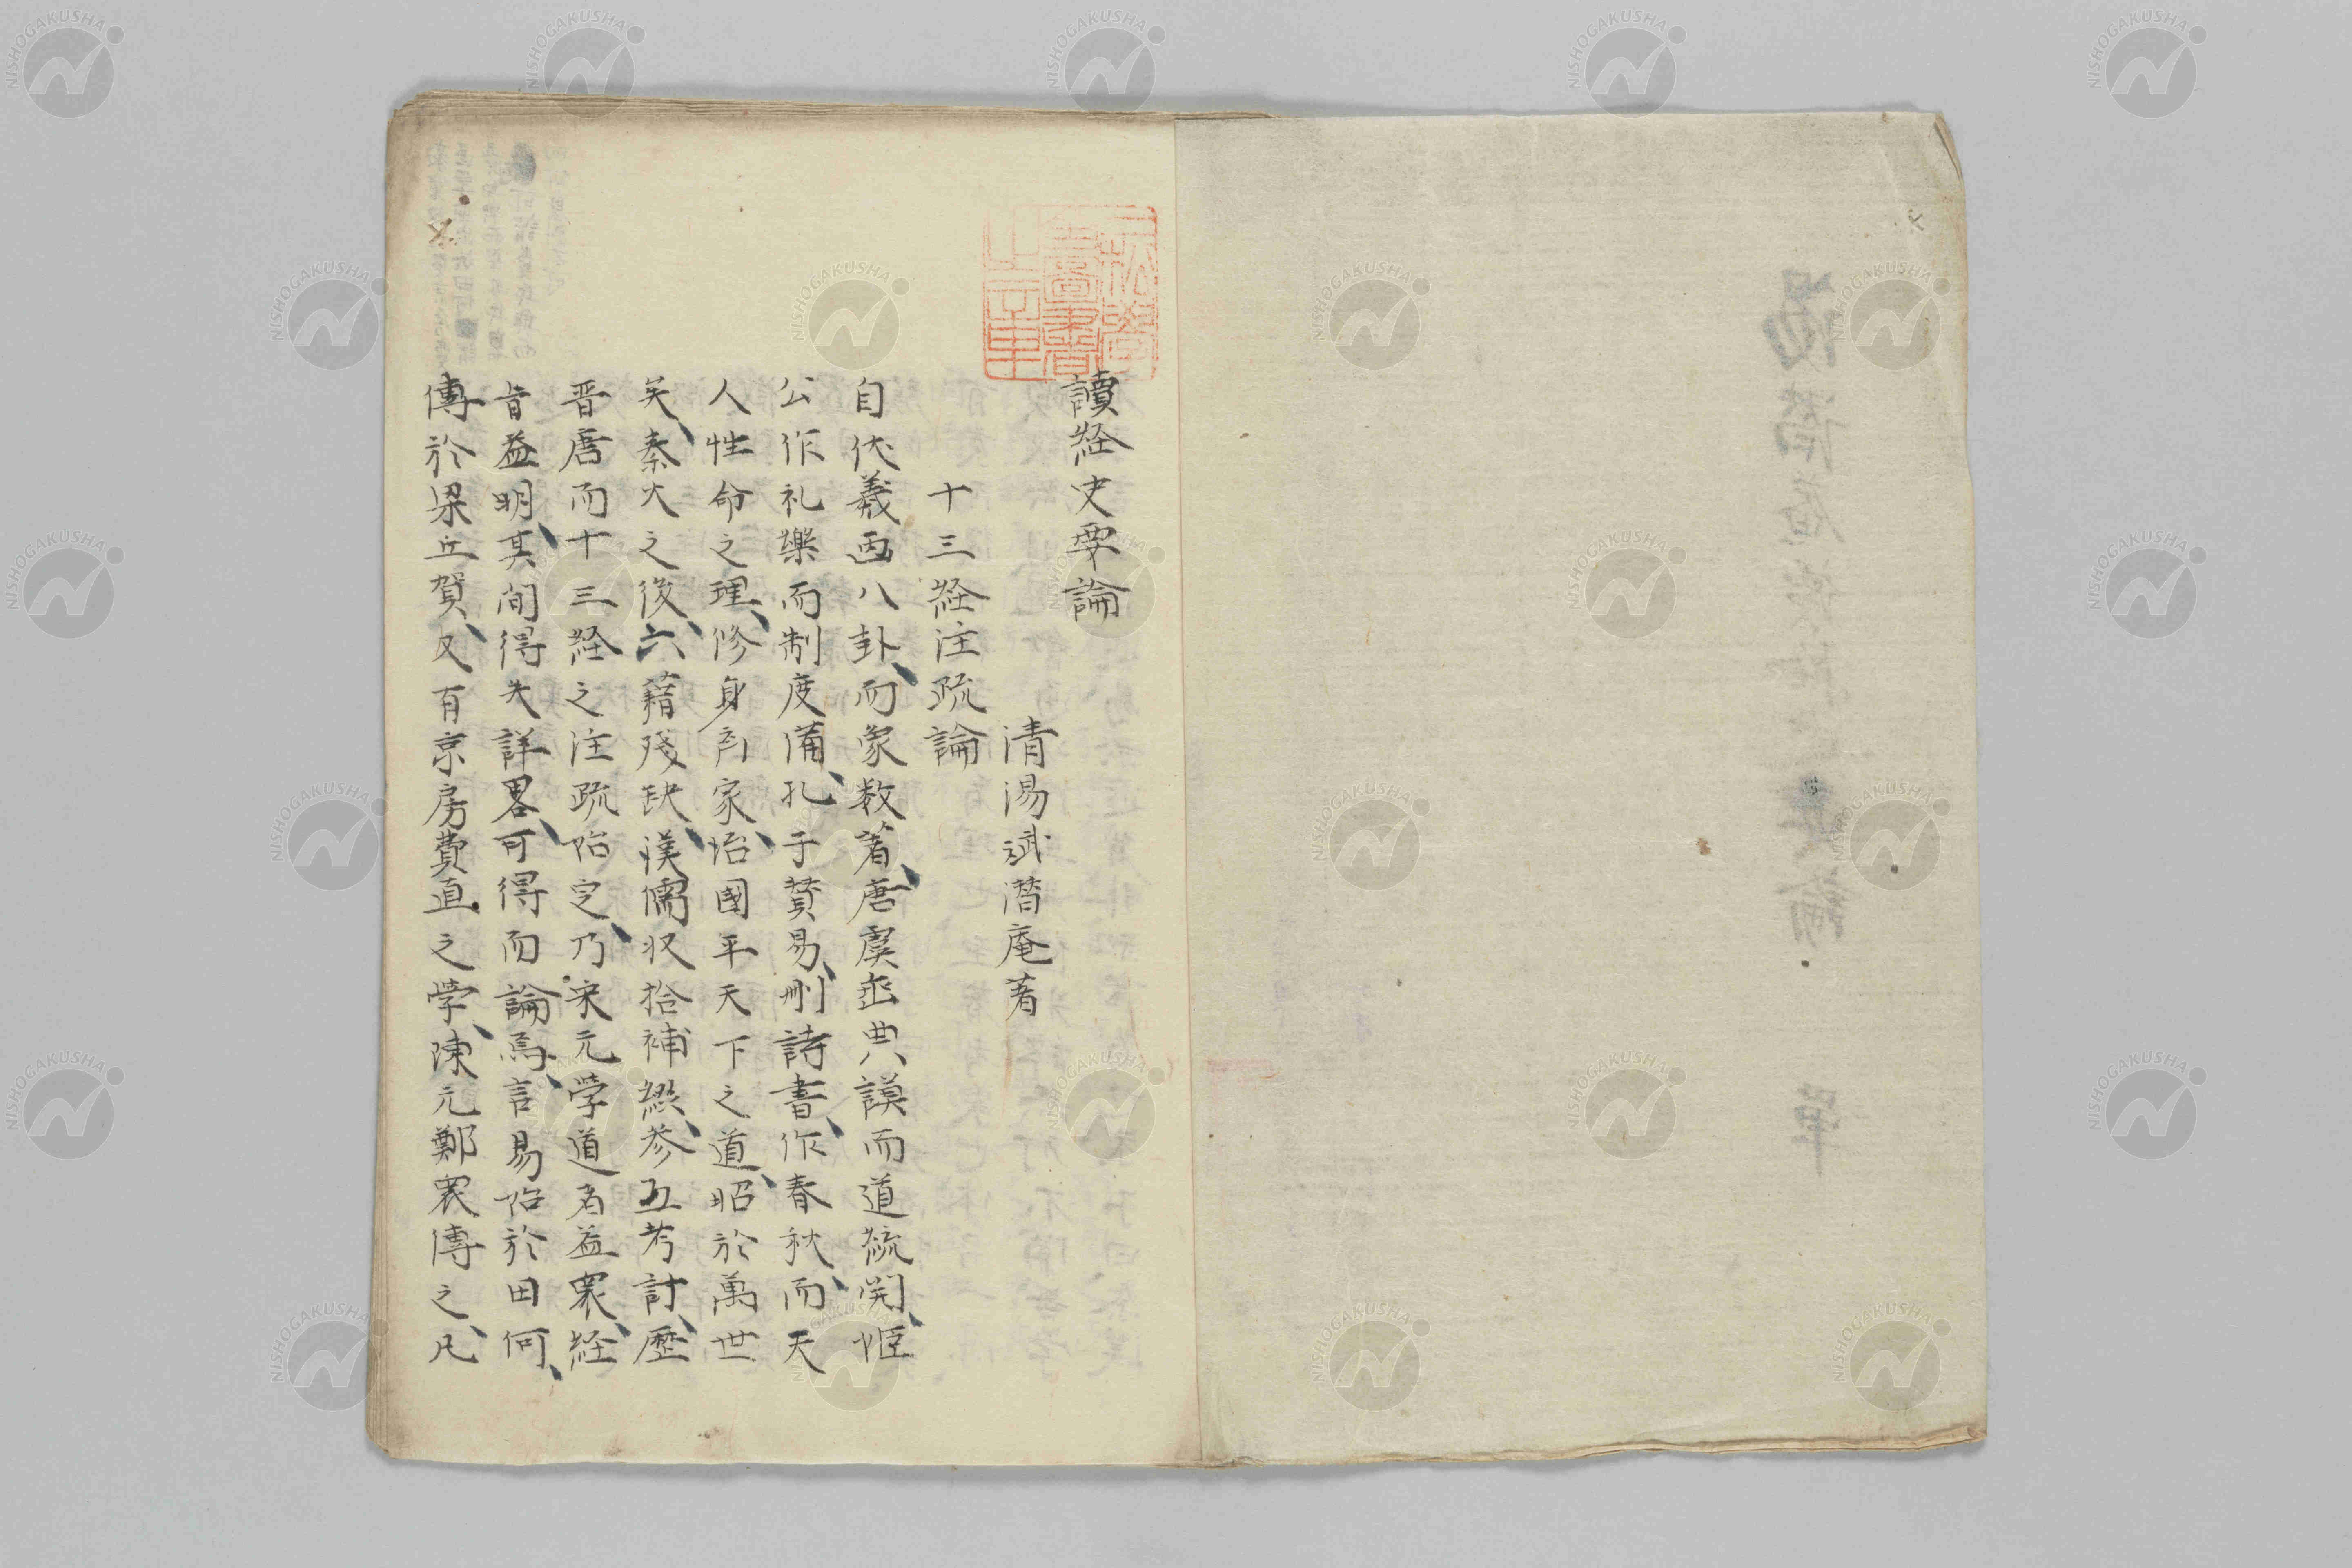 讀経史要論
清湯斌潜庵著
十三経注疏論
自伏羲画八卦、而象数著、唐虞垂典謨而道統開、姬
公作礼樂而制度備、孔子賛易、刪詩書、作春秋、而天
人性命之理、修身斉家、治國平天下之道、昭於萬世
矣、秦火之後、六藉殘缺、漢儒収拾補綴、参五考討、歷
晋唐而十三経之注疏始定、乃宋元学道者益衆、経
旨益明、其间得失詳畧、可得而論焉、言易始於田何、
傳於梁丘賀、又有京房費直之学、陳元鄭衆傳之、凡
NISHOGAKUSHA